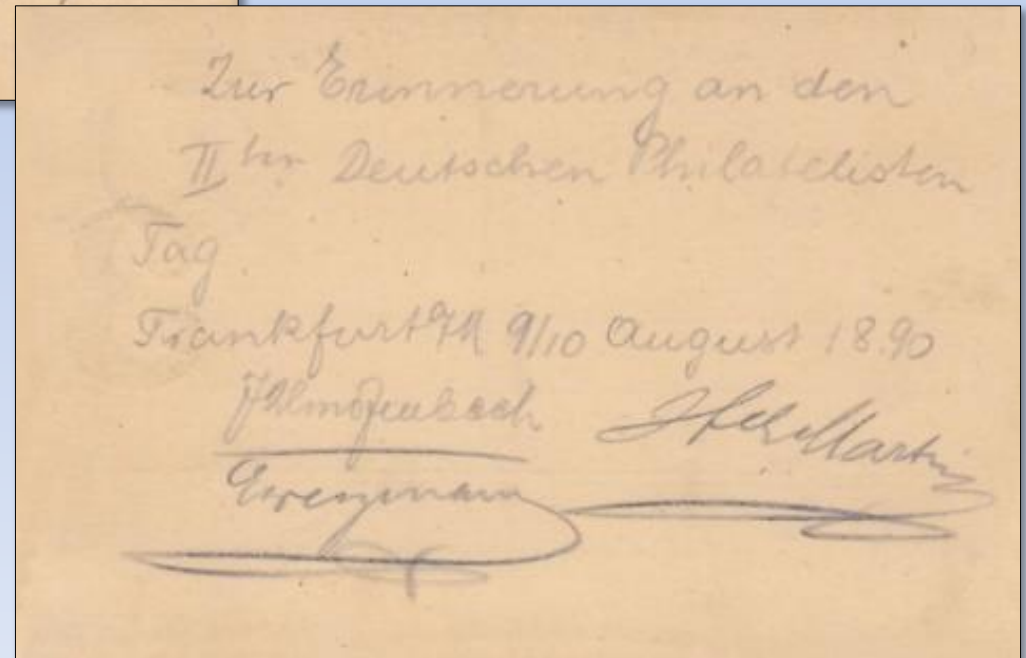 Zur Erinnerung an den
II ten Deutschen Philatelisten
Tag
Frankfurt 9/10 August 1890
Martin